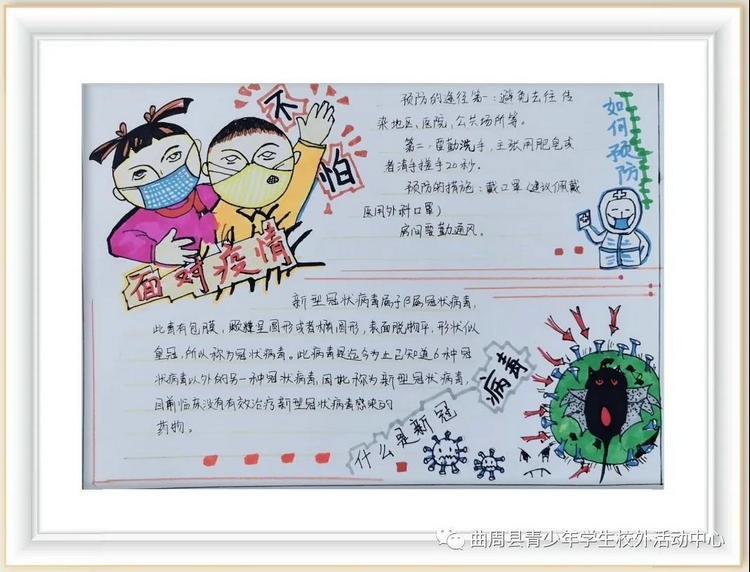 面对疫情
不怕
预防的途径第一：避免去往传
染地区、医院、公共场所等。
第二：要勤洗手，主张用肥皂或
者清手搓手20秒。
预防的措施：戴口罩（建议佩戴
医用外科口罩）
房间要勤通风。
如何预防
新型冠状病毒属于β属冠状病毒，
此毒有包膜，颗粒呈圆形或者椭圆形，表面脱物，形状似
皇冠，所以称为冠状病毒。此病毒是迄今为止已知道6种冠
状病毒以外的另一种冠状病毒，因此称为新型冠状病毒，
目前临床没有有效治疗新型冠状病毒感染的
药物。
什么是新冠
病毒
曲周县青少年学生校外活动中心